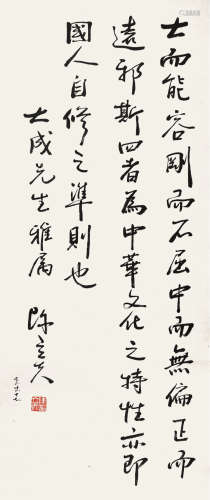 大而能容剛而不屈中而無偏正而
遠邪斯四者為中華文化之特性亦即
國人自修之準則也
大成先生雅屬
陳立夫